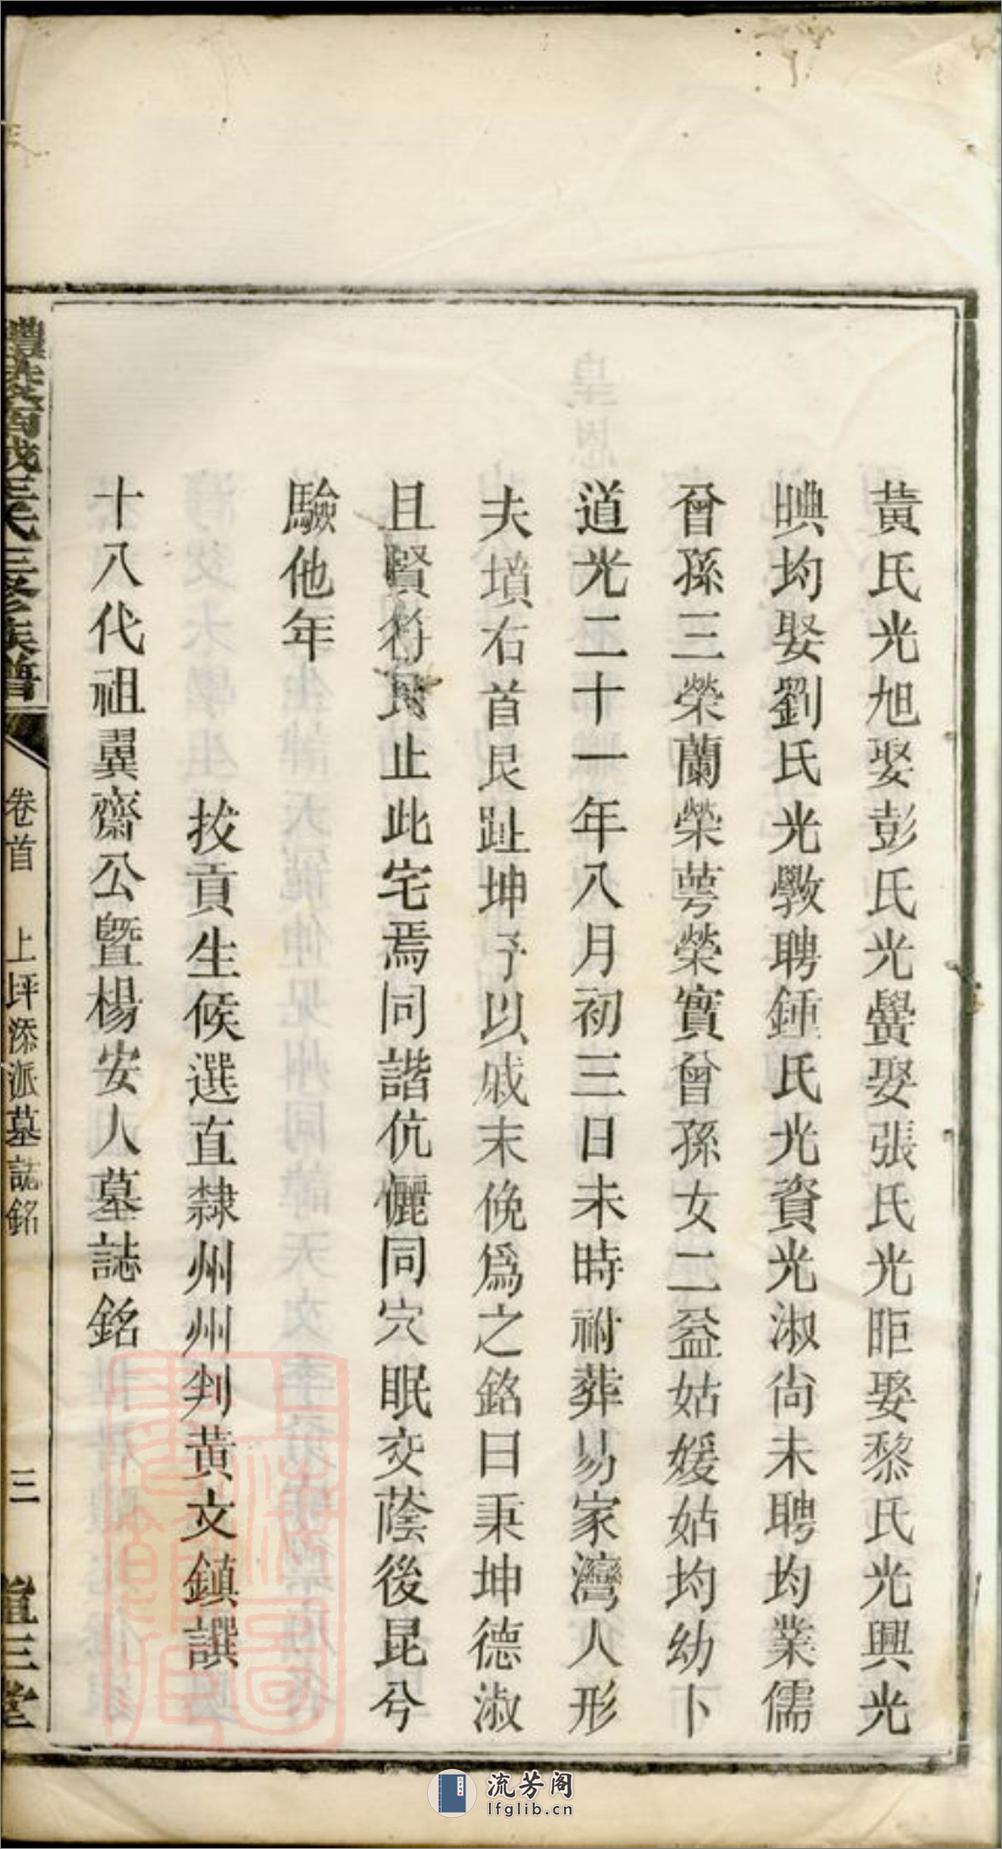 黃氏光旭娶彭氏光黌娶張氏光昛娶黎氏光興光
㬒均娶劉氏光斆聘鍾氏光資光淑尚未聘均業儒
曾孫三榮蘭榮萼榮實曾孫女二益姑媛姑均幼卜
道光二十一年八月初三日未時祔葬易家灣人形
夫墳右首艮趾坤予以戚末俛爲之銘曰秉坤德淑
且賢符艮止此宅焉同諧伉儷同穴眠交蔭後昆兮
驗他年
拔貢生候選直隸州州判黃文鎮譔
十八代祖翼齋公曁楊安人墓誌銘
氏三修族譜
卷首
上坪添派墓誌銘
三
三堂
流芳阁
lfglib.cn